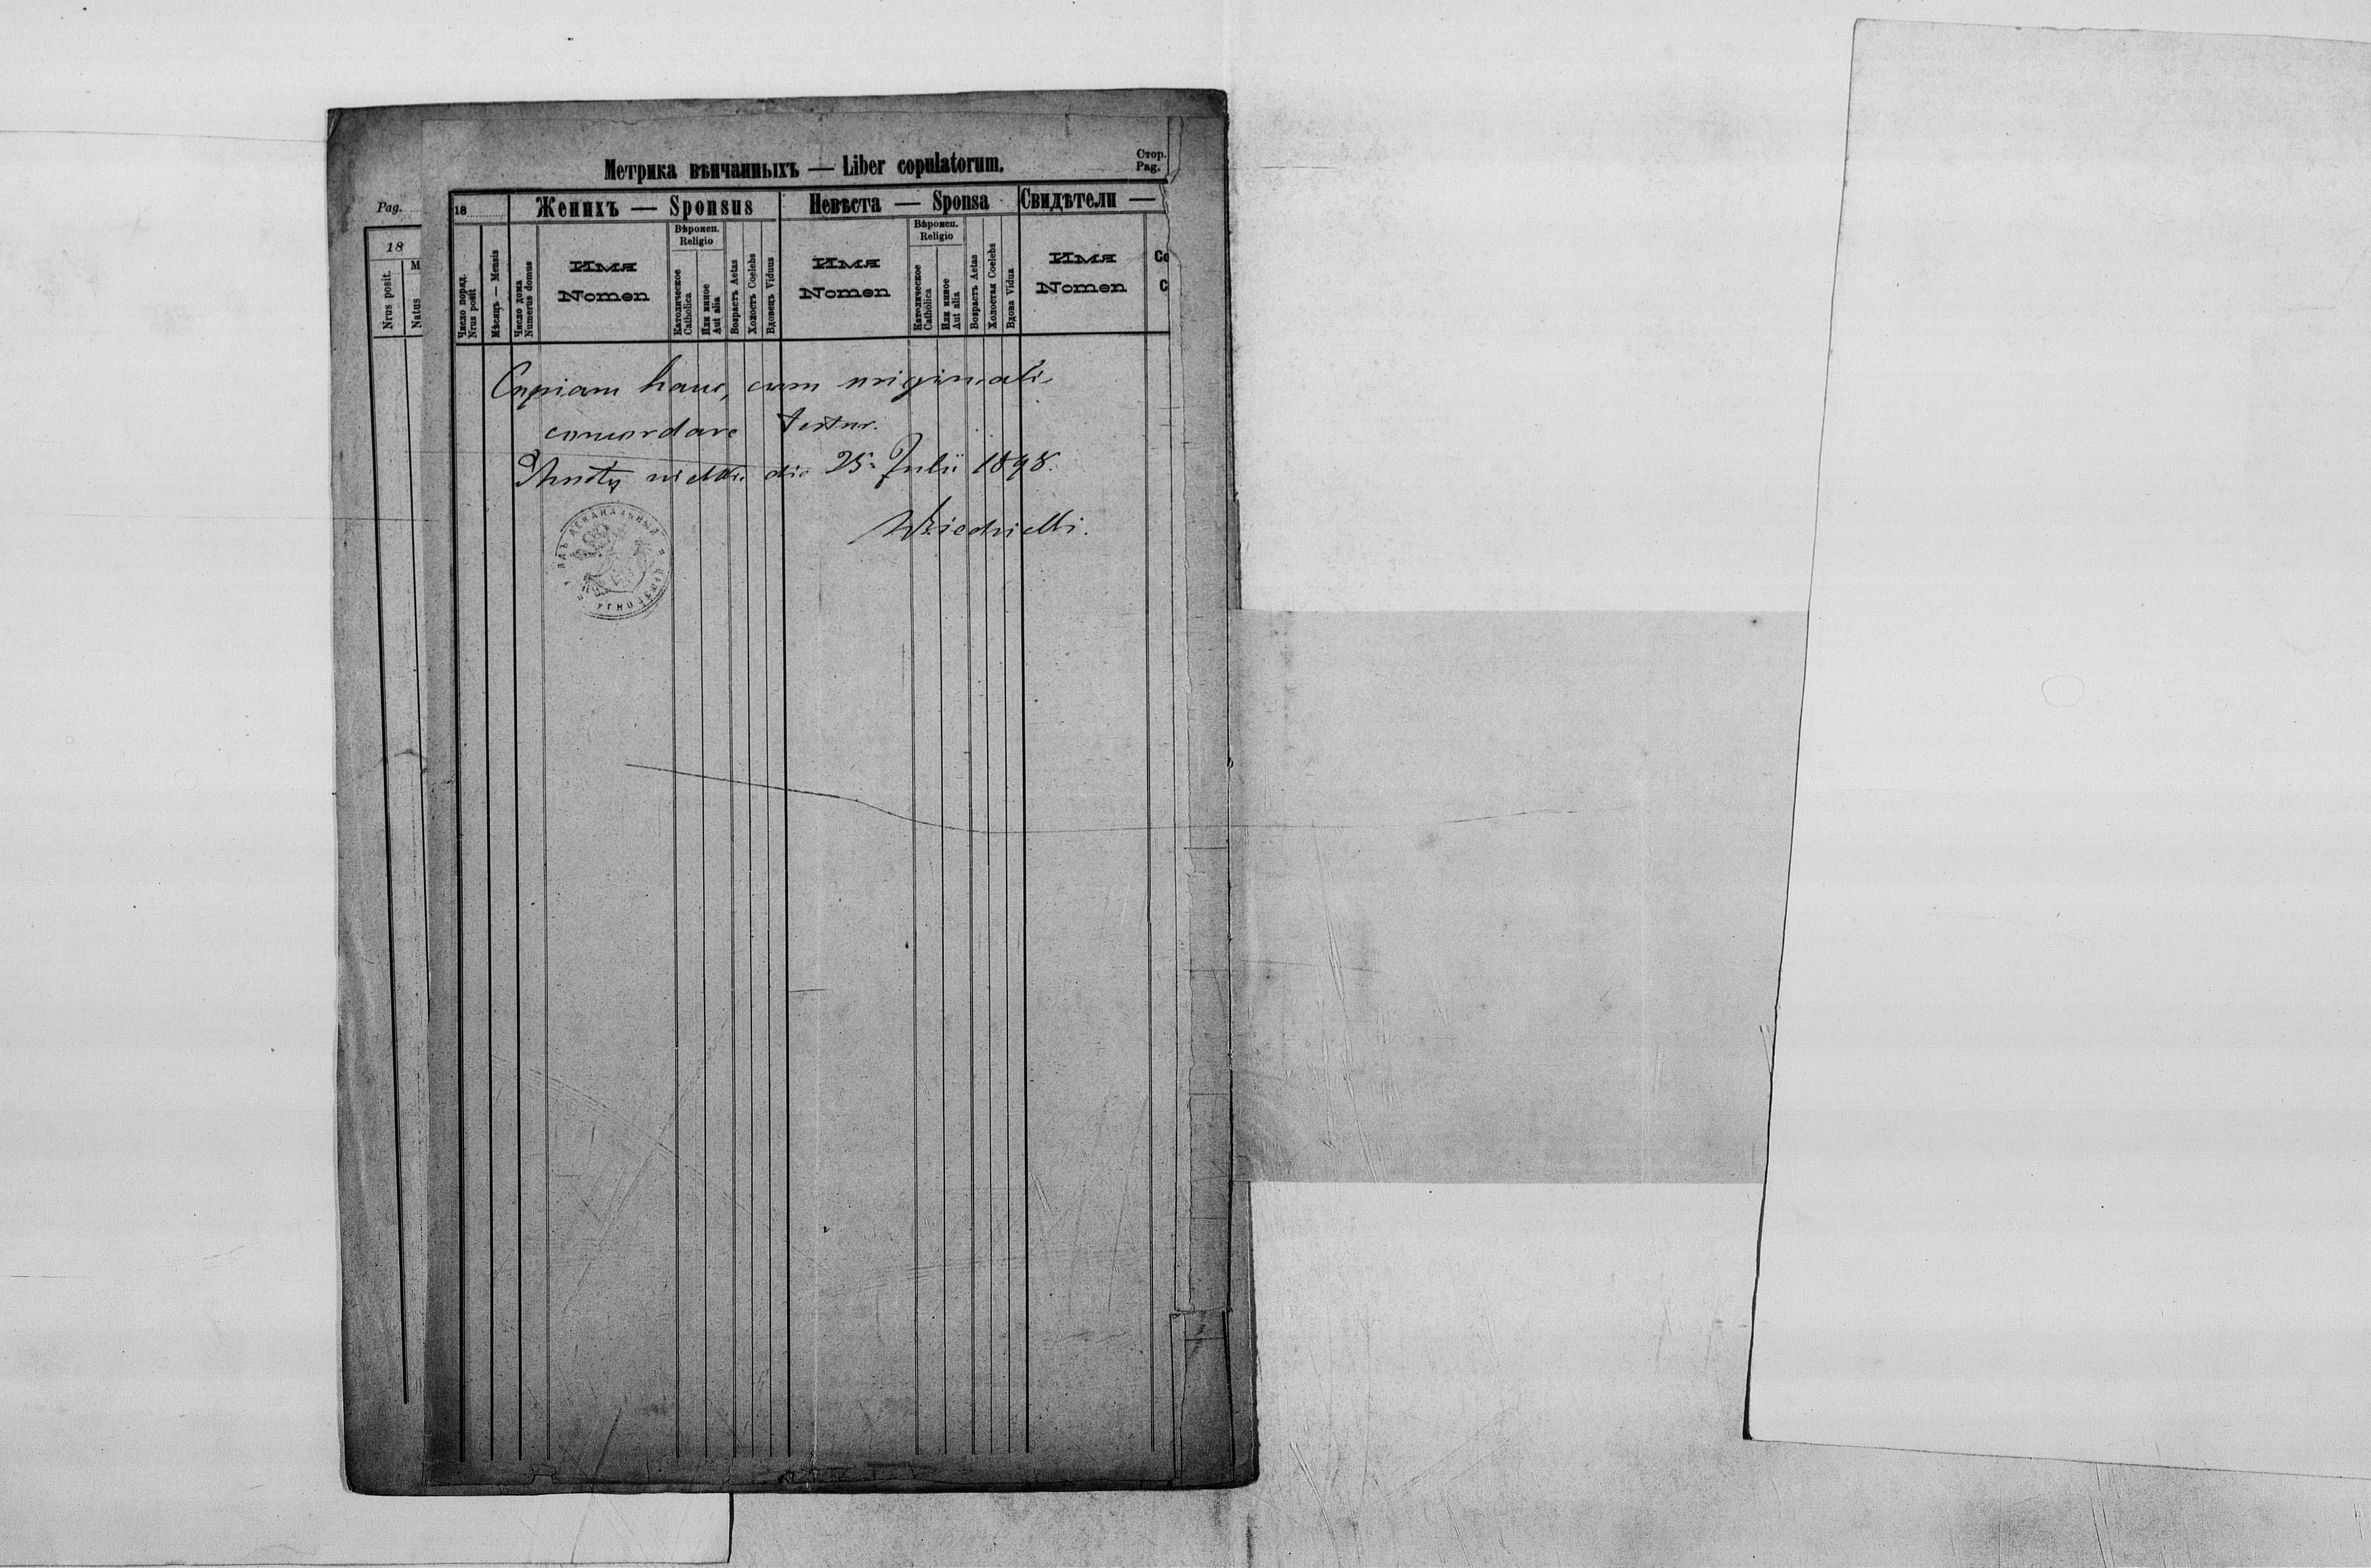 Метрика вѣнчанныхъ — Liber copulatorum.
Стор.
Pag.
Pag.
18
Nrus posit.
Natus
18
Женихъ — Sponsus
Невѣста — Sponsa
Свидѣтели —
Число поряд.
Nrus posit
Мѣсяцъ — Mensis
Число дома
Numerus domus
Имя
Nomen
Вѣроисп.
Religio
Католическое
Catholica
Или иное
Aut alia
Возрастъ Aetas
Холостъ Coelebs
Вдовецъ Viduus
Имя
Nomen
Вѣроисп.
Religio
Католическое
Catholica
Или иное
Aut alia
Возрастъ Aetas
Холостая Coelebs
Вдова Vidua
Имя
Nomen
Copiam hanc, cum originali
concordare testor.
die 25. Julii 1898.